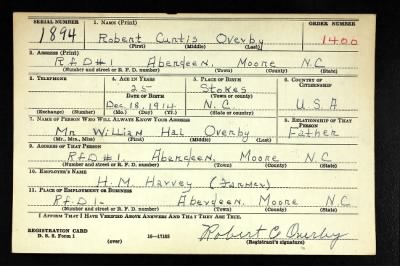 SERIAL NUMBER 1. NAME (Print) ORDER NUMBER
1894 Robert Curtis Overby 1400
(First) (Middle) (Last)
2. ADDRESS (Print)
RfD#1 Aberdeen, Moore N.C
(Number and street or R. F. D. number) (Town) (County) (State)
3. TELEPHONE 4. AGE IN YEARS 5. PLACE OF BIRTH 6. COUNTRY OF CITIZENSHIP
25 Stokes
DATE OF BIRTH (Town or county)
Dec. 18, 1914 N.C. U.S.A
(Exchange) (Number) (Mo.) (Day) (Yr.) (State or country)
7. NAME OF PERSON WHO WILL ALWAYS KNOW YOUR ADDRESS 8. RELATIONSHIP OF THAT PERSON
Mr Willian Hal Overby Father
(Mr., Mrs., Miss) (First) (Middle) (Last)
9. ADDRESS OF THAT PERSON
RfD#1. Aberdeen, Moore N.C
(Number and street or R. F. D. number) (Town) (County) (State)
10. EMPLOYER'S NAME
H. M. Harvey (Farmer)
11. PLACE OF EMPLOYMENT OR BUSINESS
RfD 1- Aberdeen, Moore N.C
(Number and street or R. F. D. number) (Town) (County) (State)
I AFFIRM THAT I HAVE VERIFIED ABOVE ANSWERS AND THAT THEY ARE TRUE.
REGISTRATION CARD
D. S. S. Form 1 16—17105 Robert C. Overby
(over) (Registrant's signature)